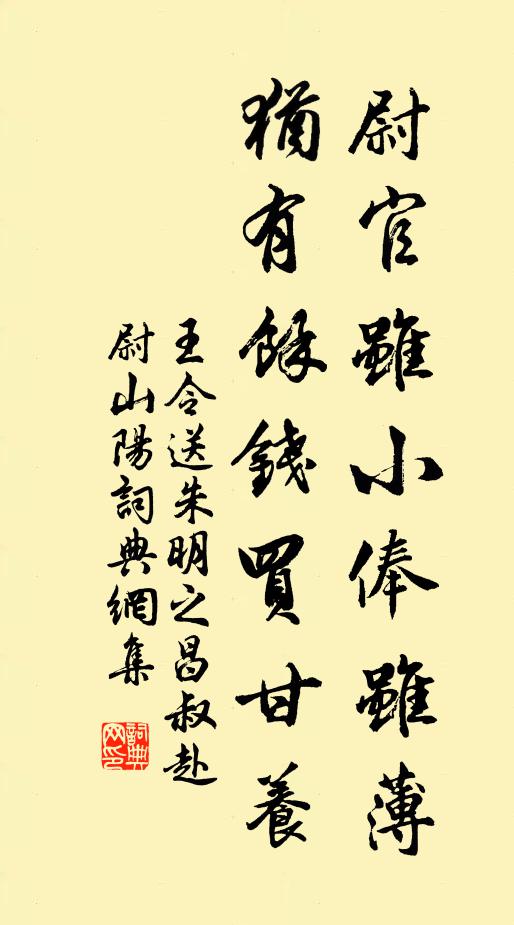 尉官雖小俸雖薄
猶有餘錢買甘養
王令送朱明之昌叔赴
尉山陽詞典網集
詞典
网印